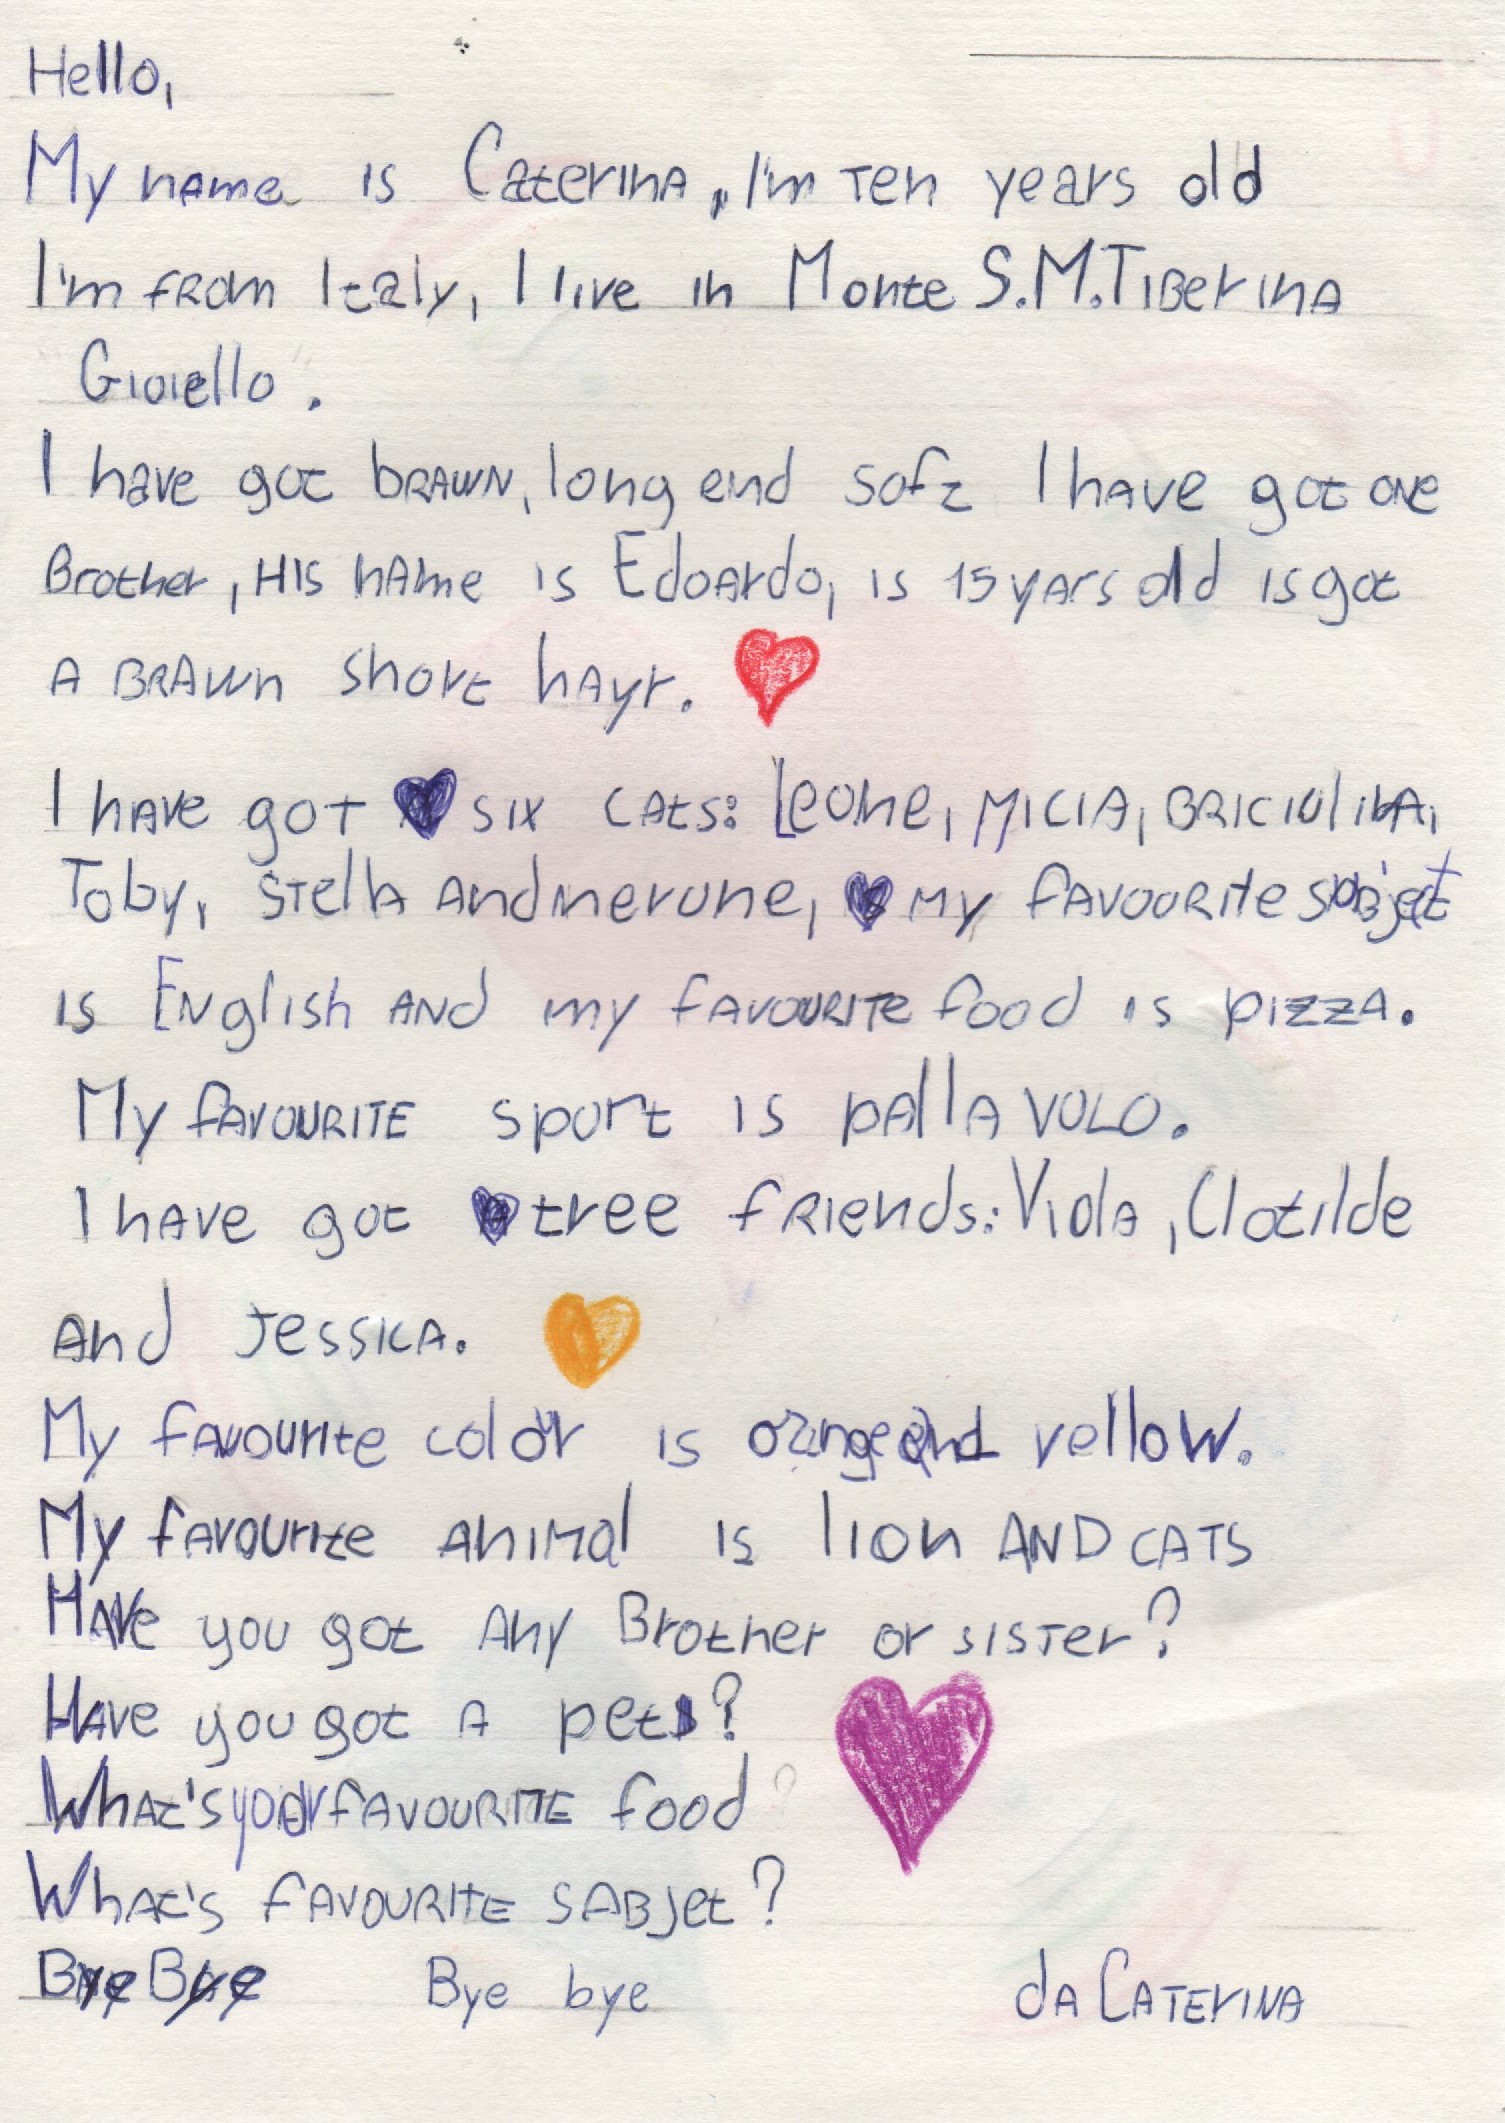 Hello,
My name is Caterina, I'm ten years old
I'm from Italy, I live in Monte S.M.Tiberina
Gioiello.
I have got brawn, long end soft I have got one
Brother, His name is Edoardo, is 15 yars old is got
a brawn short hayr.
I have got six cats: Leone, Micia, Briciolina,
Toby, Stella and nerone, my favoourite subject
is English and my favourite food is pizza.
My favourite sport is palla volo.
I have got tree friends: Viola, Clotilde
and Jessica.
My favourite color is orange and yellow.
My favourite animal is lion AND CATS
Have you got any Brother or sister?
Have you got a pet?
What's your favourite food?
What's favourite sabjet?
Bye Bye Bye bye da Caterina